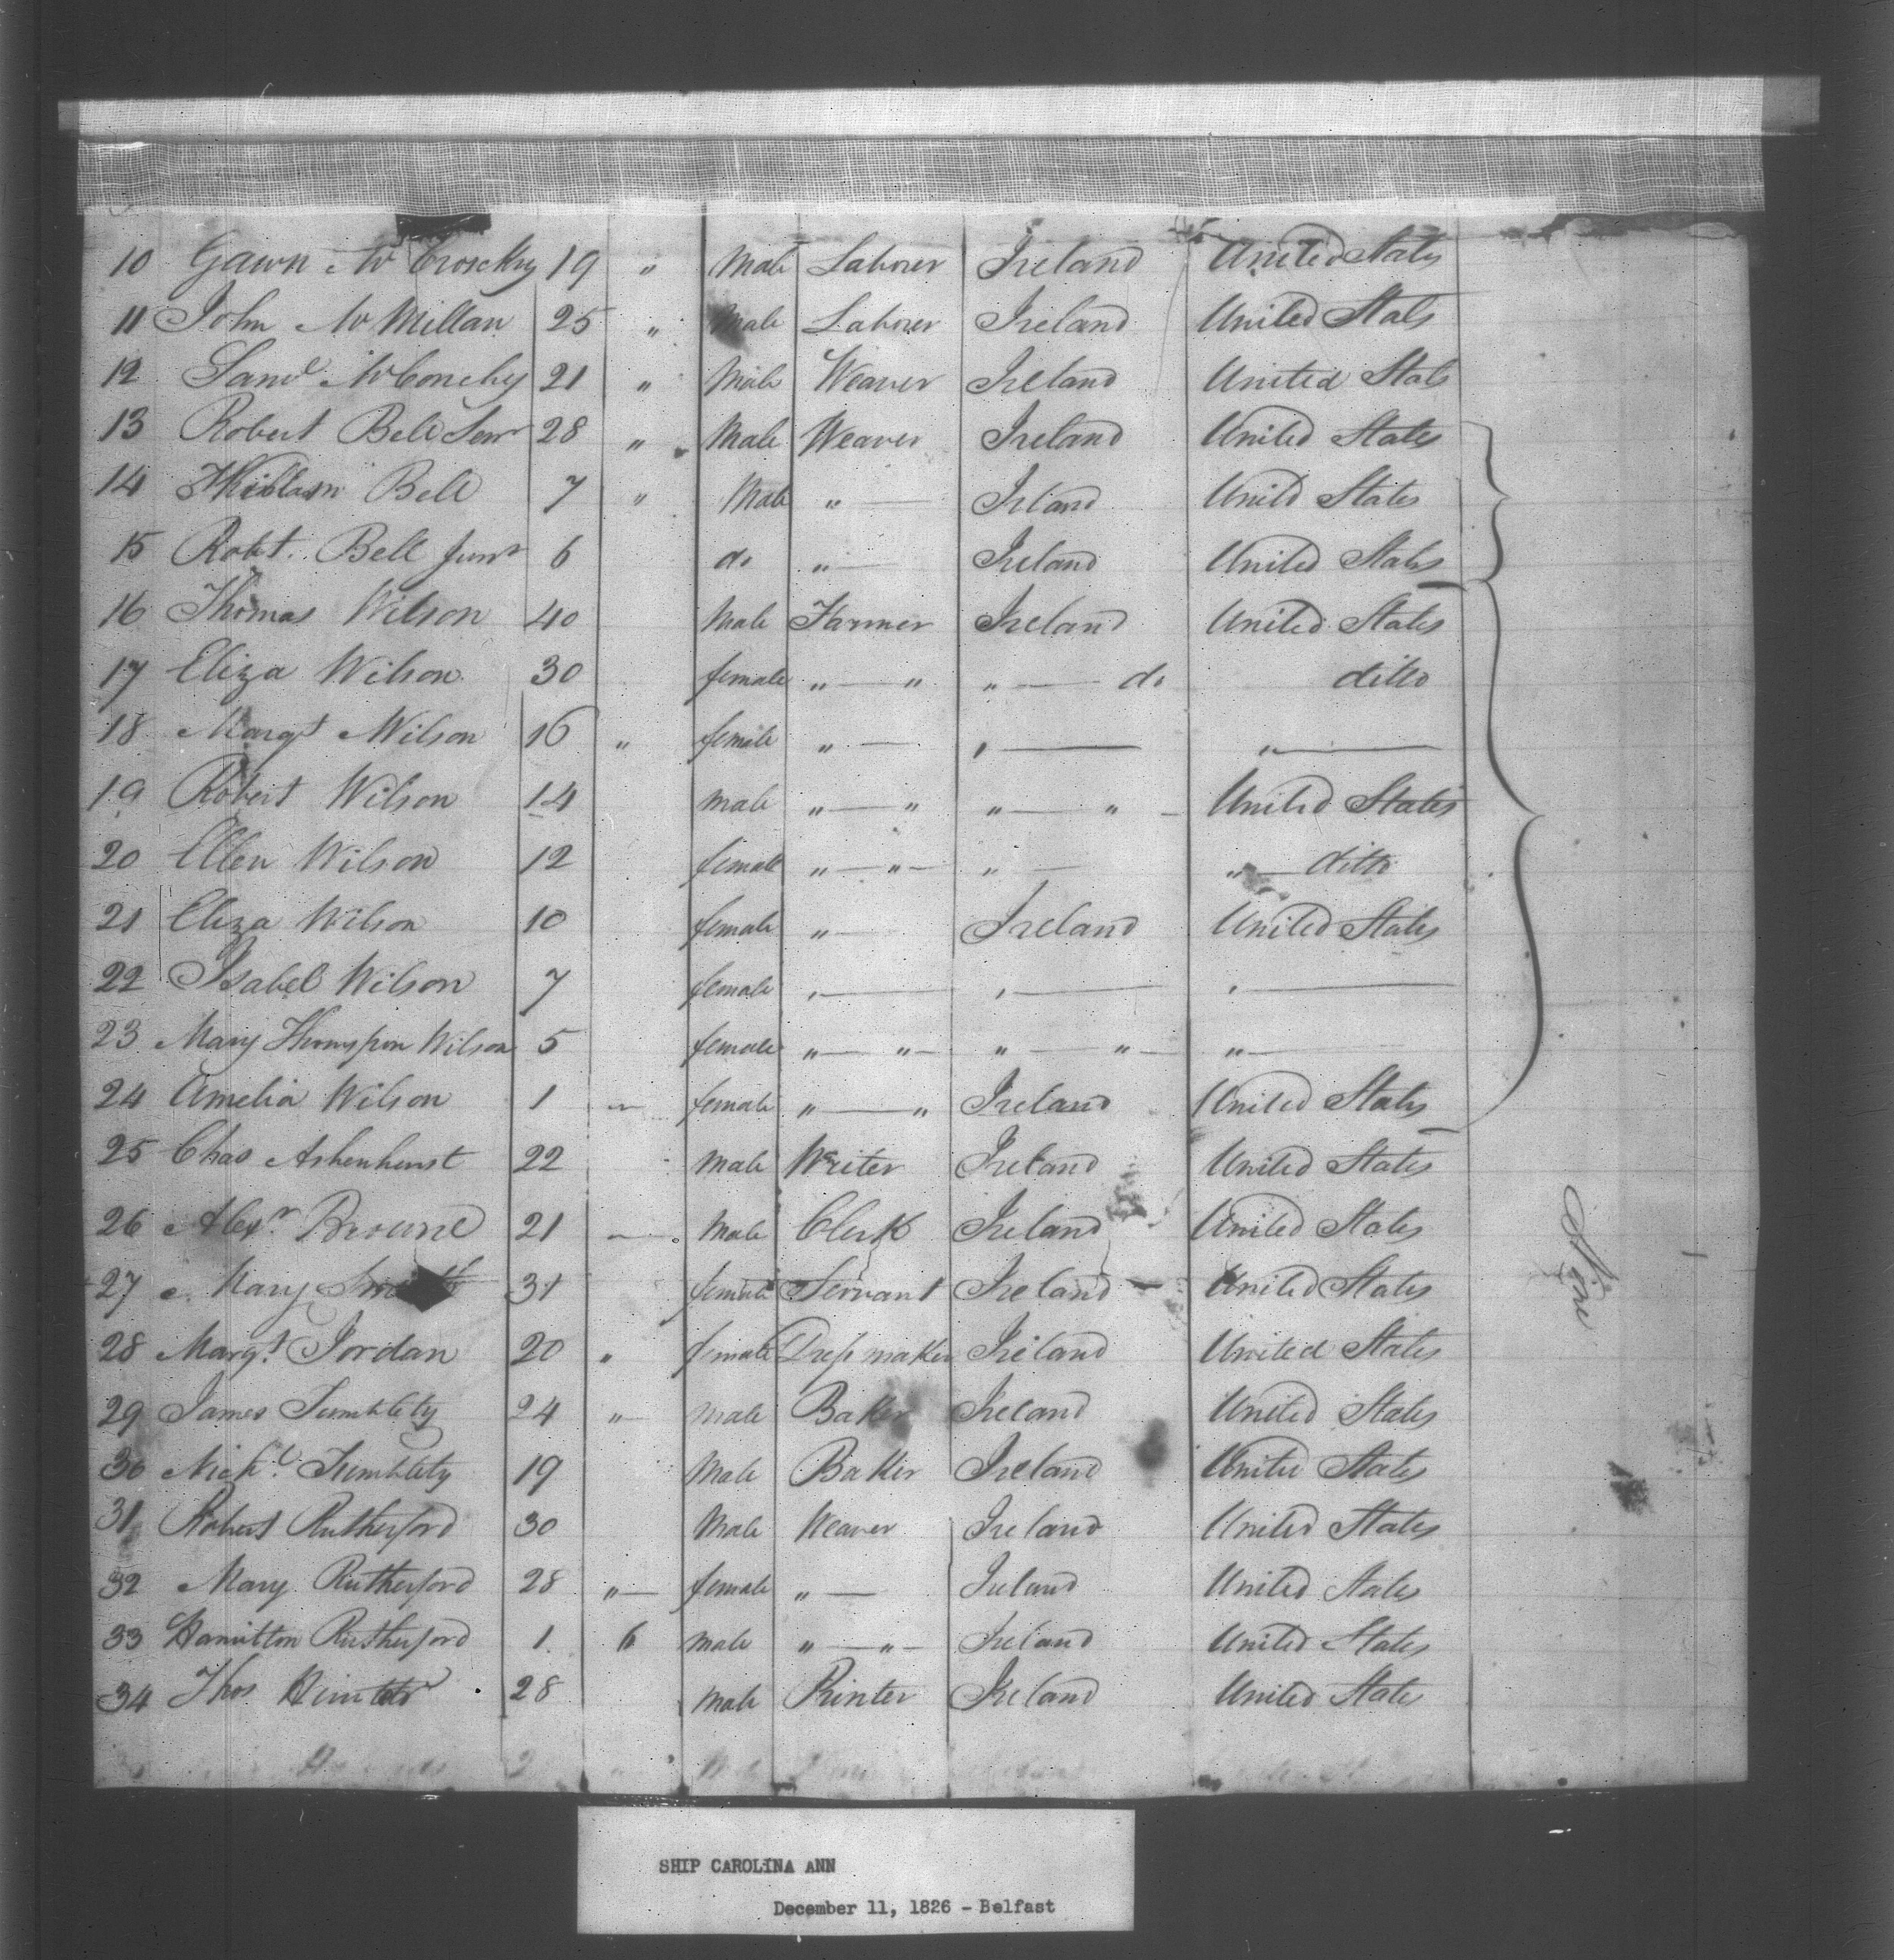 10 Gawn Mc Croskry 19 " Male Laborer Ireland United States
11 John Mc Millan 25 " Male Laborer Ireland United Stats
12 Saml McConchy 21 " Male Weaver Ireland United Stats
13 Robert Bell Senr 28 " Male Weaver Ireland United States
14 William Bell 7 " Male " — Irland Unitd States
15 Robt. Bell Junr 6 do " — Ireland United States
16 Thomas Wilson 40 Male Farmer Ireland United States
17 Eliza Wilson 30 female " — " " — do ditto
18 Margt Wilson 16 " female " — " — " —
19 Robert Wilson 14 male " — " " — " — United States
20 Ellen Wilson 12 female " — " — " — " — ditto
21 Eliza Wilson 10 female " — Ireland United States
22 Isabel Wilson 7 female " — " — " —
23 Mary Thompson Wilson 5 female " — " — " — " — " —
24 Amelia Wilson 1 — female " — " Ireland United States
25 Chas Ashenhurst 22 male Writer Ireland United States
26 Alexr. Broune 21 — Male Clerk Ireland United States
27 Mary 31 female Servant Ireland — United States
28 Margt. Jordan 20 " female Dress maker Ireland United States
29 James Tumblety 24 " — male Baker Ireland United States
30 Nichl. Tumblety 19 Male Baker Ireland United States
31 Robert Rutherford 30 Male Weaver Ireland United States
32 Mary Rutherford 28 " — female " — Ireland United States
33 Hamilton Rutherford 1. 6 male " — " — Ireland United States
34 Thos 28 Male Printer Ireland United States
None
SHIP CAROLINA ANN
December 11, 1826 - Belfast